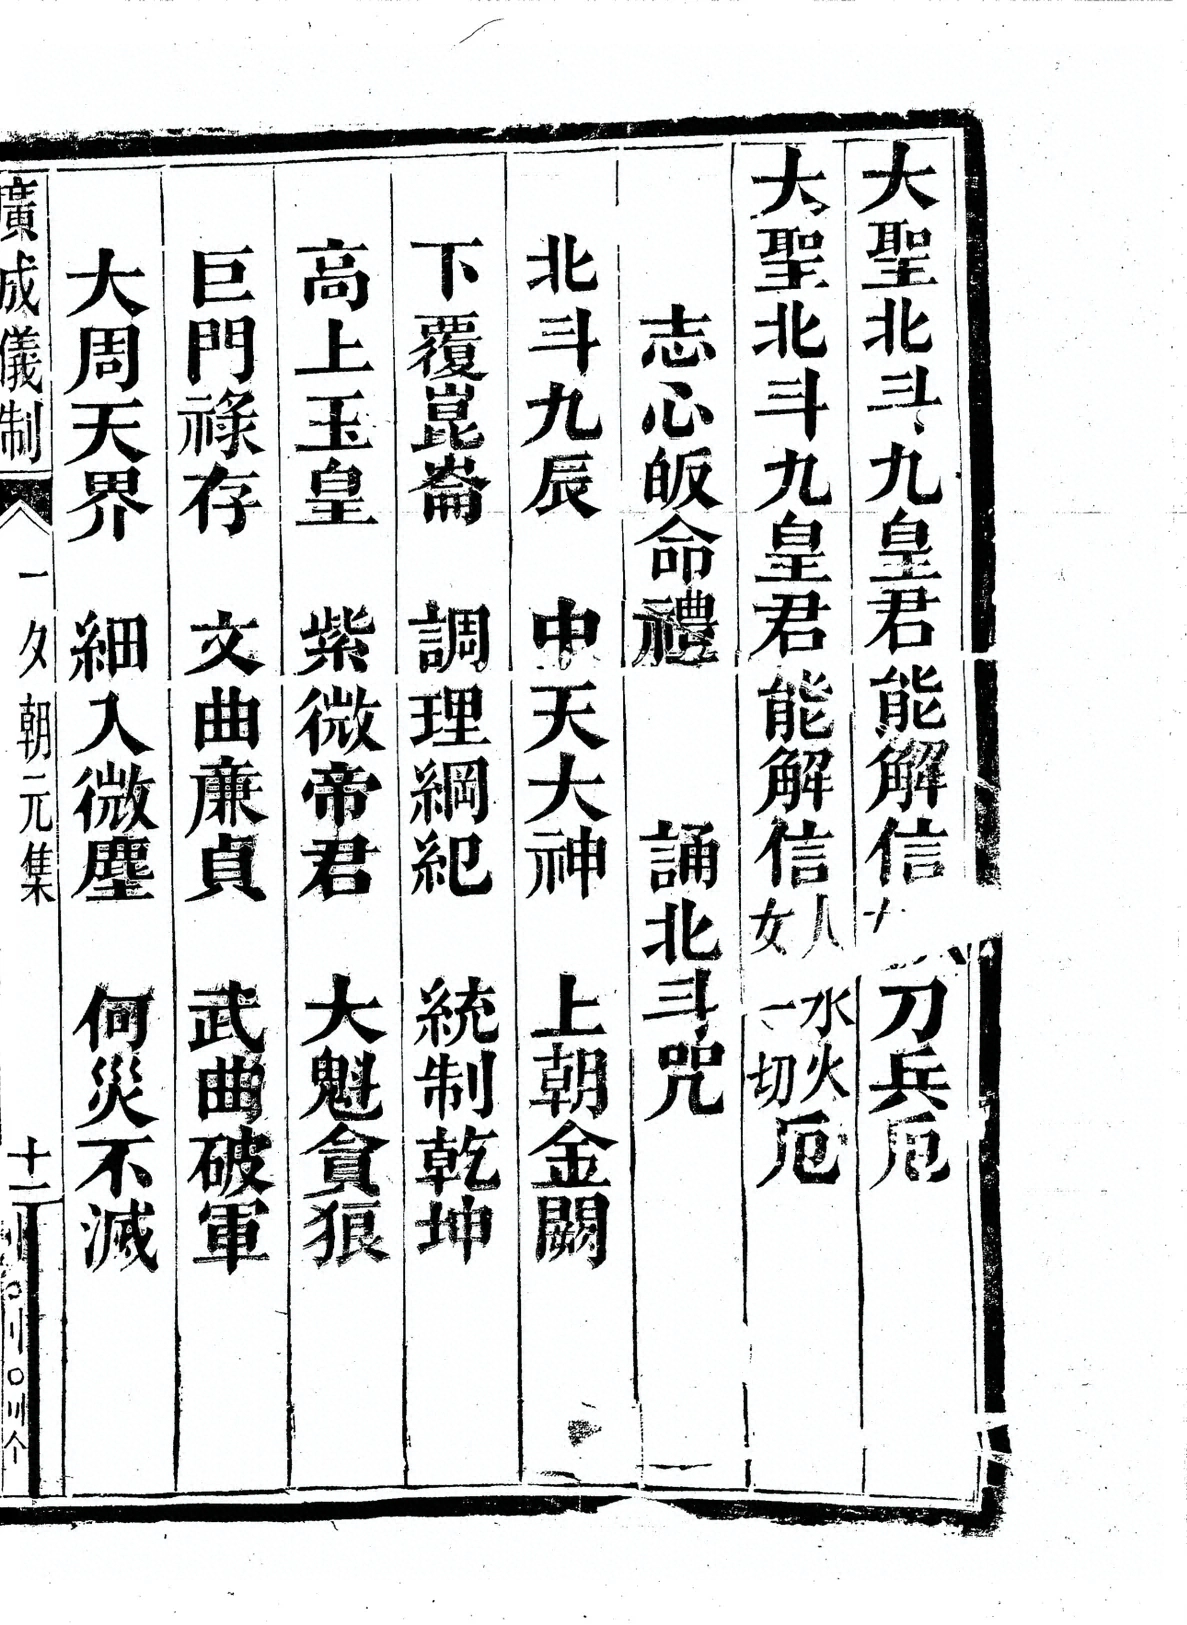 大聖北斗九皇君能解信 刀兵厄
大聖北斗九皇君能解信人女水火一切厄
志心皈命禮 誦北斗咒
北斗九辰 中天大神 上朝金闕
下覆崑崙 調理綱紀 統制乾坤
高上玉皇 紫微帝君 大魁貪狼
巨門祿存 文曲廉貞 武曲破軍
大周天界 細入微塵 何災不滅
廣成儀制 一夕朝元集 十二